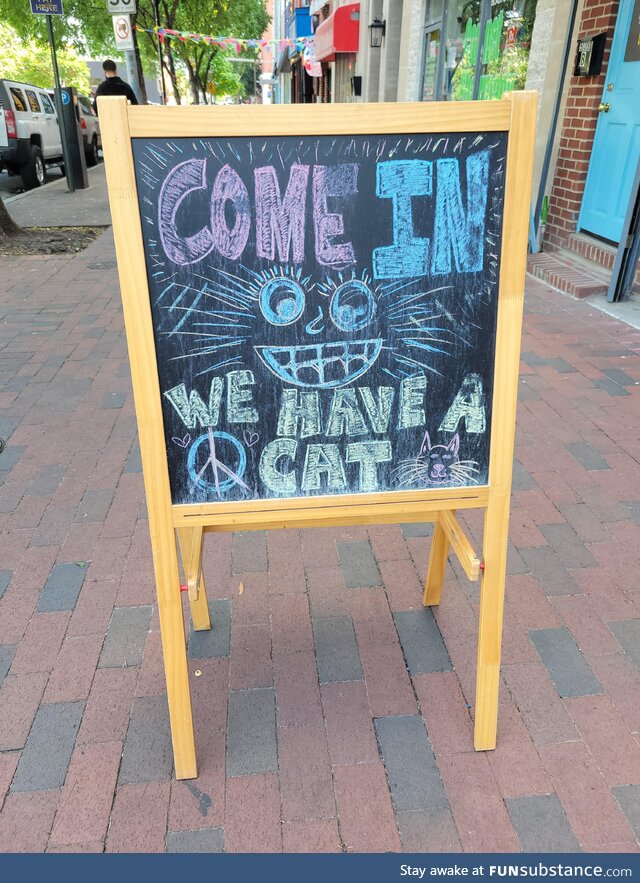 COME IN
WE HAVE A
CAT
Stay awake at FUNsubstance.com